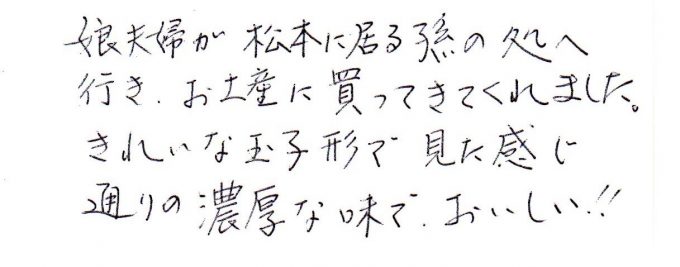 娘夫婦が松本に居る孫の処へ
行き、お土産に買ってきてくれました。
きれいな玉子形で見た感じ
通りの濃厚な味で、おいしい!!